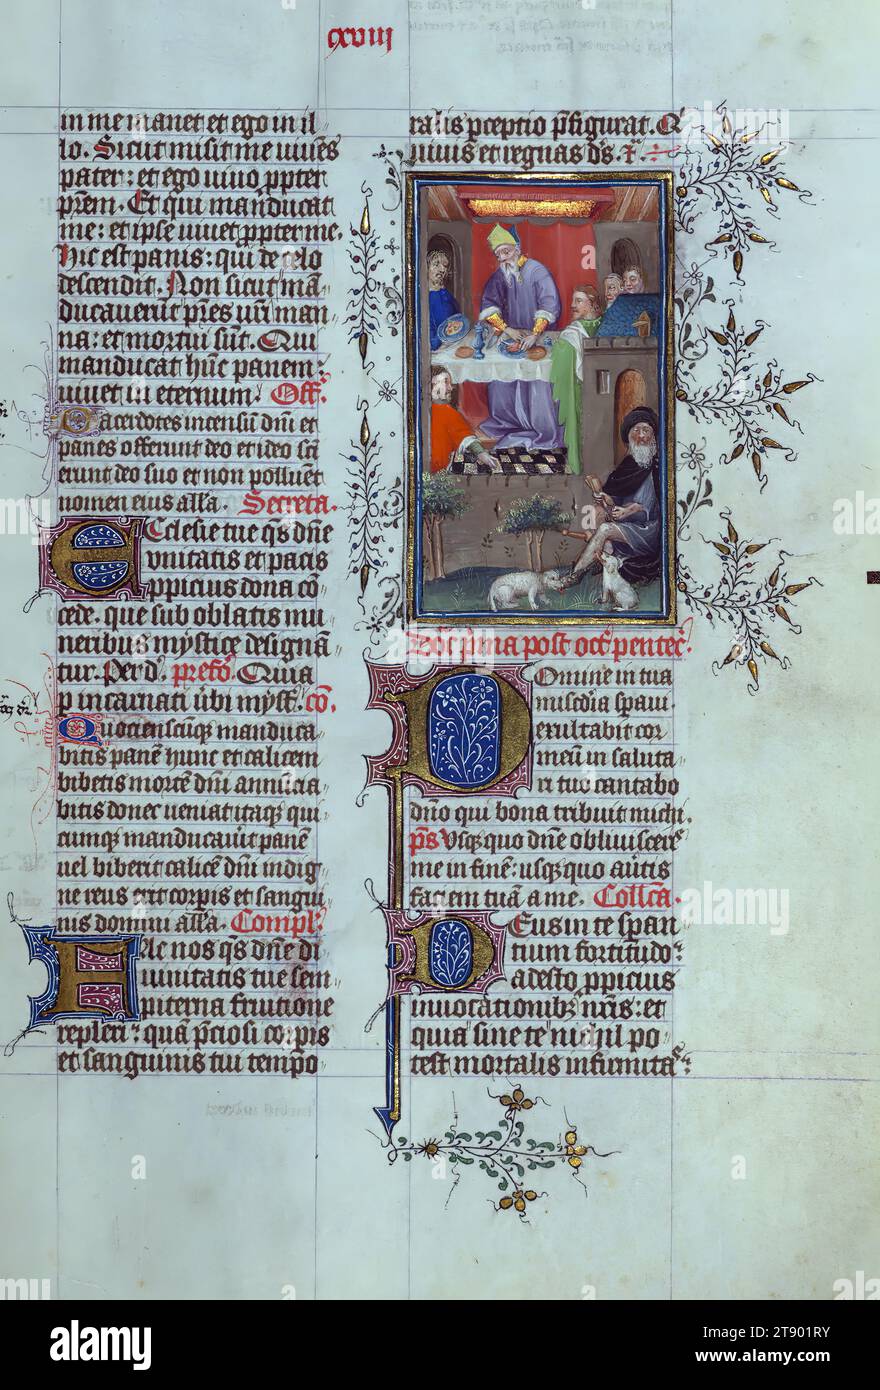 cxviii
in me manet et ego in il
lo. Sicut misit me vivēs
pater: et ego vivo ꝓpter
prēm. Et qui manducat
me: et ipse vivet ꝓpter me.
Hic est panis: qui de celo
descendit. Non sicut mā
ducaverūt prēs vrī man
na: et mortui sūt. Qui
manducat hūc panem:
vivet in eternum. Off.
Sacerdotes incensū dnī et
panes offerunt deo et ideo scī
erunt deo suo et non polluēt
nomen eius alla. Secreta.
Ecclesie tue qs dnē
unitatis et pacis
ꝓpicius dona cō
cede. que sub oblatis mu
neribus mystice designā
tur. Per d. prefō. Quia
p incarnati ubi mysť. cō.
Quotienscūqꝫ manduca
bitis panē hunc et calicem
bibetis mortē dnī annūcia
bitis donec veniat itaqꝫ qui
cumqꝫ manducavīt panē
vel biberit calicē dnī indig
ne reus erit corpis et sangui
nis domini alla. Compl.
Fac nos qs dnē di
vinitatis tue sem
piterna fruitione
repleri: quā pciosi corpis
et sanguinis tui tempo
ralis pceptio pfigurat. Q
vivis et regnas ds.
Dōc prima post oct penteč.
Domine in tua
misedia spavi.
exultabit cor
meū in saluta
ri tuo cantabo
dnō qui bona tribuit michi.
ps Usqꝫ quo dnē obliviscerˢ
me in finē: usqꝫ quo avtis
faciem tuā a me. Collca.
Deus in te span
tium fortitudo
adesto ꝓpicius
invocationibꝫ nrīs: et
quia sine te nichil po
test mortalis infirmitaˢ
alamy
Image ID: 2T901RY
www.alamy.com